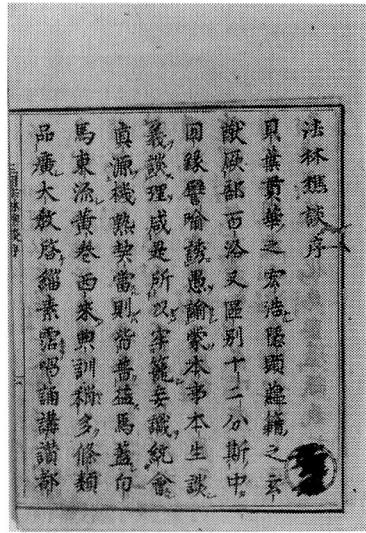 法林樵談序
貝葉貫華之宏浩隱顯蘊藉之玄
猷厥部百洛叉區別十二分斯中
因緣譬喻誘愚諭蒙本事本生談
義談理咸是所以牢籠妄識統會
眞源機熟契當則皆普益焉蓋白
馬東流黃卷西來興訓稍多條類
品廣大教啓緇素霑唱誦講讚部